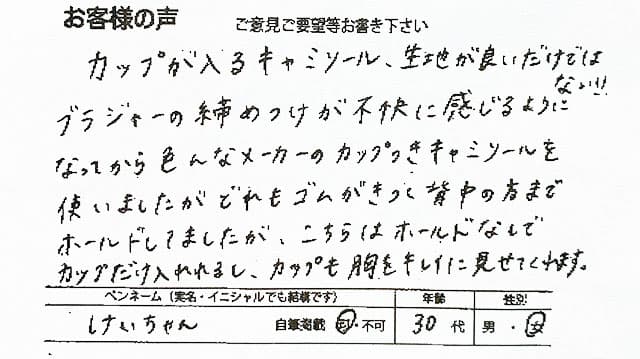 お客様の声 ご意見ご要望等お書き下さい
カップが入るキャミソール、生地が良いだけでは
ない!!
ブラジャーの締めつけが不快に感じるように
なってから色んなメーカーのカップつきキャミソールを
使いましたがどれもゴムがきつく背中の方まで
ホールドしてましたが、こちらはホールドなしで
カップだけ入れれるし、カップも胸をキレイに見せてくれます。
ペンネーム(実名・イニシャルでも結構です) 年齢 性別
けいちゃん 自筆掲載 可・不可 30代 男・女